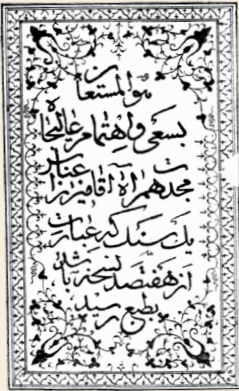 هو المستعان
بسعی و اهتمام عالیجاه
مجدت همراه آقا میرزا
یک سنگ که عبارت
از هفتصد نسخه باشد
بطبع رسید